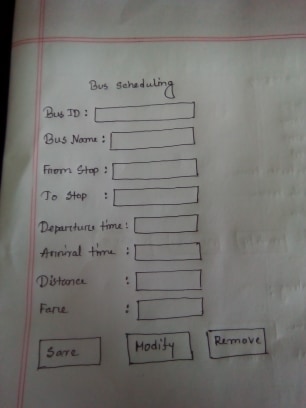 Bus Scheduling
Bus ID :
Bus Name :
From Stop :
To Stop :
Departure time :
Arrival time :
Distance :
Fare :
Save Modify Remove